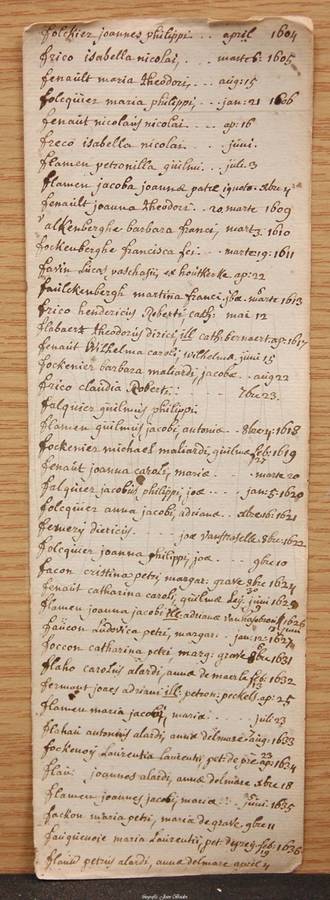 folckier joannes philippi . . . april 1604
frico isabella nicolai, . . . marte 6: 1605
fenault maria theodori, . . . aug: 15
folcquier maria philippi, . . . jan: 21 1606
fenaut nicolaus nicolai . . . ap: 16
freco isabella nicolai . . . juni
flamen petronilla guilmi . . juli 3
flamen jacoba joannæ patre ignoto: xbre 4
fenault joanna theodori . . 20 marte 1609
valkenberghe barbara franci, mart 3. 1610
fockenberghe francisca fei . . . marte 19: 1611
favin Lucas paschasij, ex houtkerke ap: 22
faulckenbergh martina franci. jbæ. marte 1613
frico hendericus Roberti cath: mai 12
flabaert theodorus dirici, ill cath: bernaert ap: 1617
fenaut Wilhelma caroli, wilhelmæ, juni 15
fockenier barbara maliardi, jacobæ . . aug 22
frico claudia Roberti: . . . 7bre 23.
falquier guilmus philippi
flamen guilmus jacobi, antoniæ . . 8bre 4: 1618
fockenier michael maliardi, guilmæ feb: 1619
fenaut joanna caroli, mariæ . . . marte 20
falquier jacobus philippi, joæ . . . jan: 5: 1620
folcquier anna jacobi, adrianæ . . xbre 16: 1621
femery diericus . . . joæ 8bre: 1622
folcquier joanna philippi, joæ . . . 9bre 10
facon cristina petri, margar: grave 8bre 1624
fenaut catharina caroli, guilmæ juni 162
flamen joanna jacobi ill: adrianæ 1626
faucon Ludovica petri, margar: . . jan: 12: 162
foccon catharina petri marg: grave 8bre 1631
flaho carolus alardi, annæ de maerle feb: 1632
fermont joaes adriani ill: petron: peckels. ap: 25
flamen maria jacobi, maria . . . juli 23
flahau antonius alardi, annæ delmare aug: 1633
fockenoy Laurentia Laurentii, pet: de pre ap: 1634
flau: joannes alardi, annæ delmare, xbre 18
flamen joannes jacobi mariæ . . . juni: 1635
fackon maria petri, maria de grave, 9bre 11
fauquenoie maria Laurentii, pet: feb: 1636
flauw petrus alardi, annæ delmare april 4